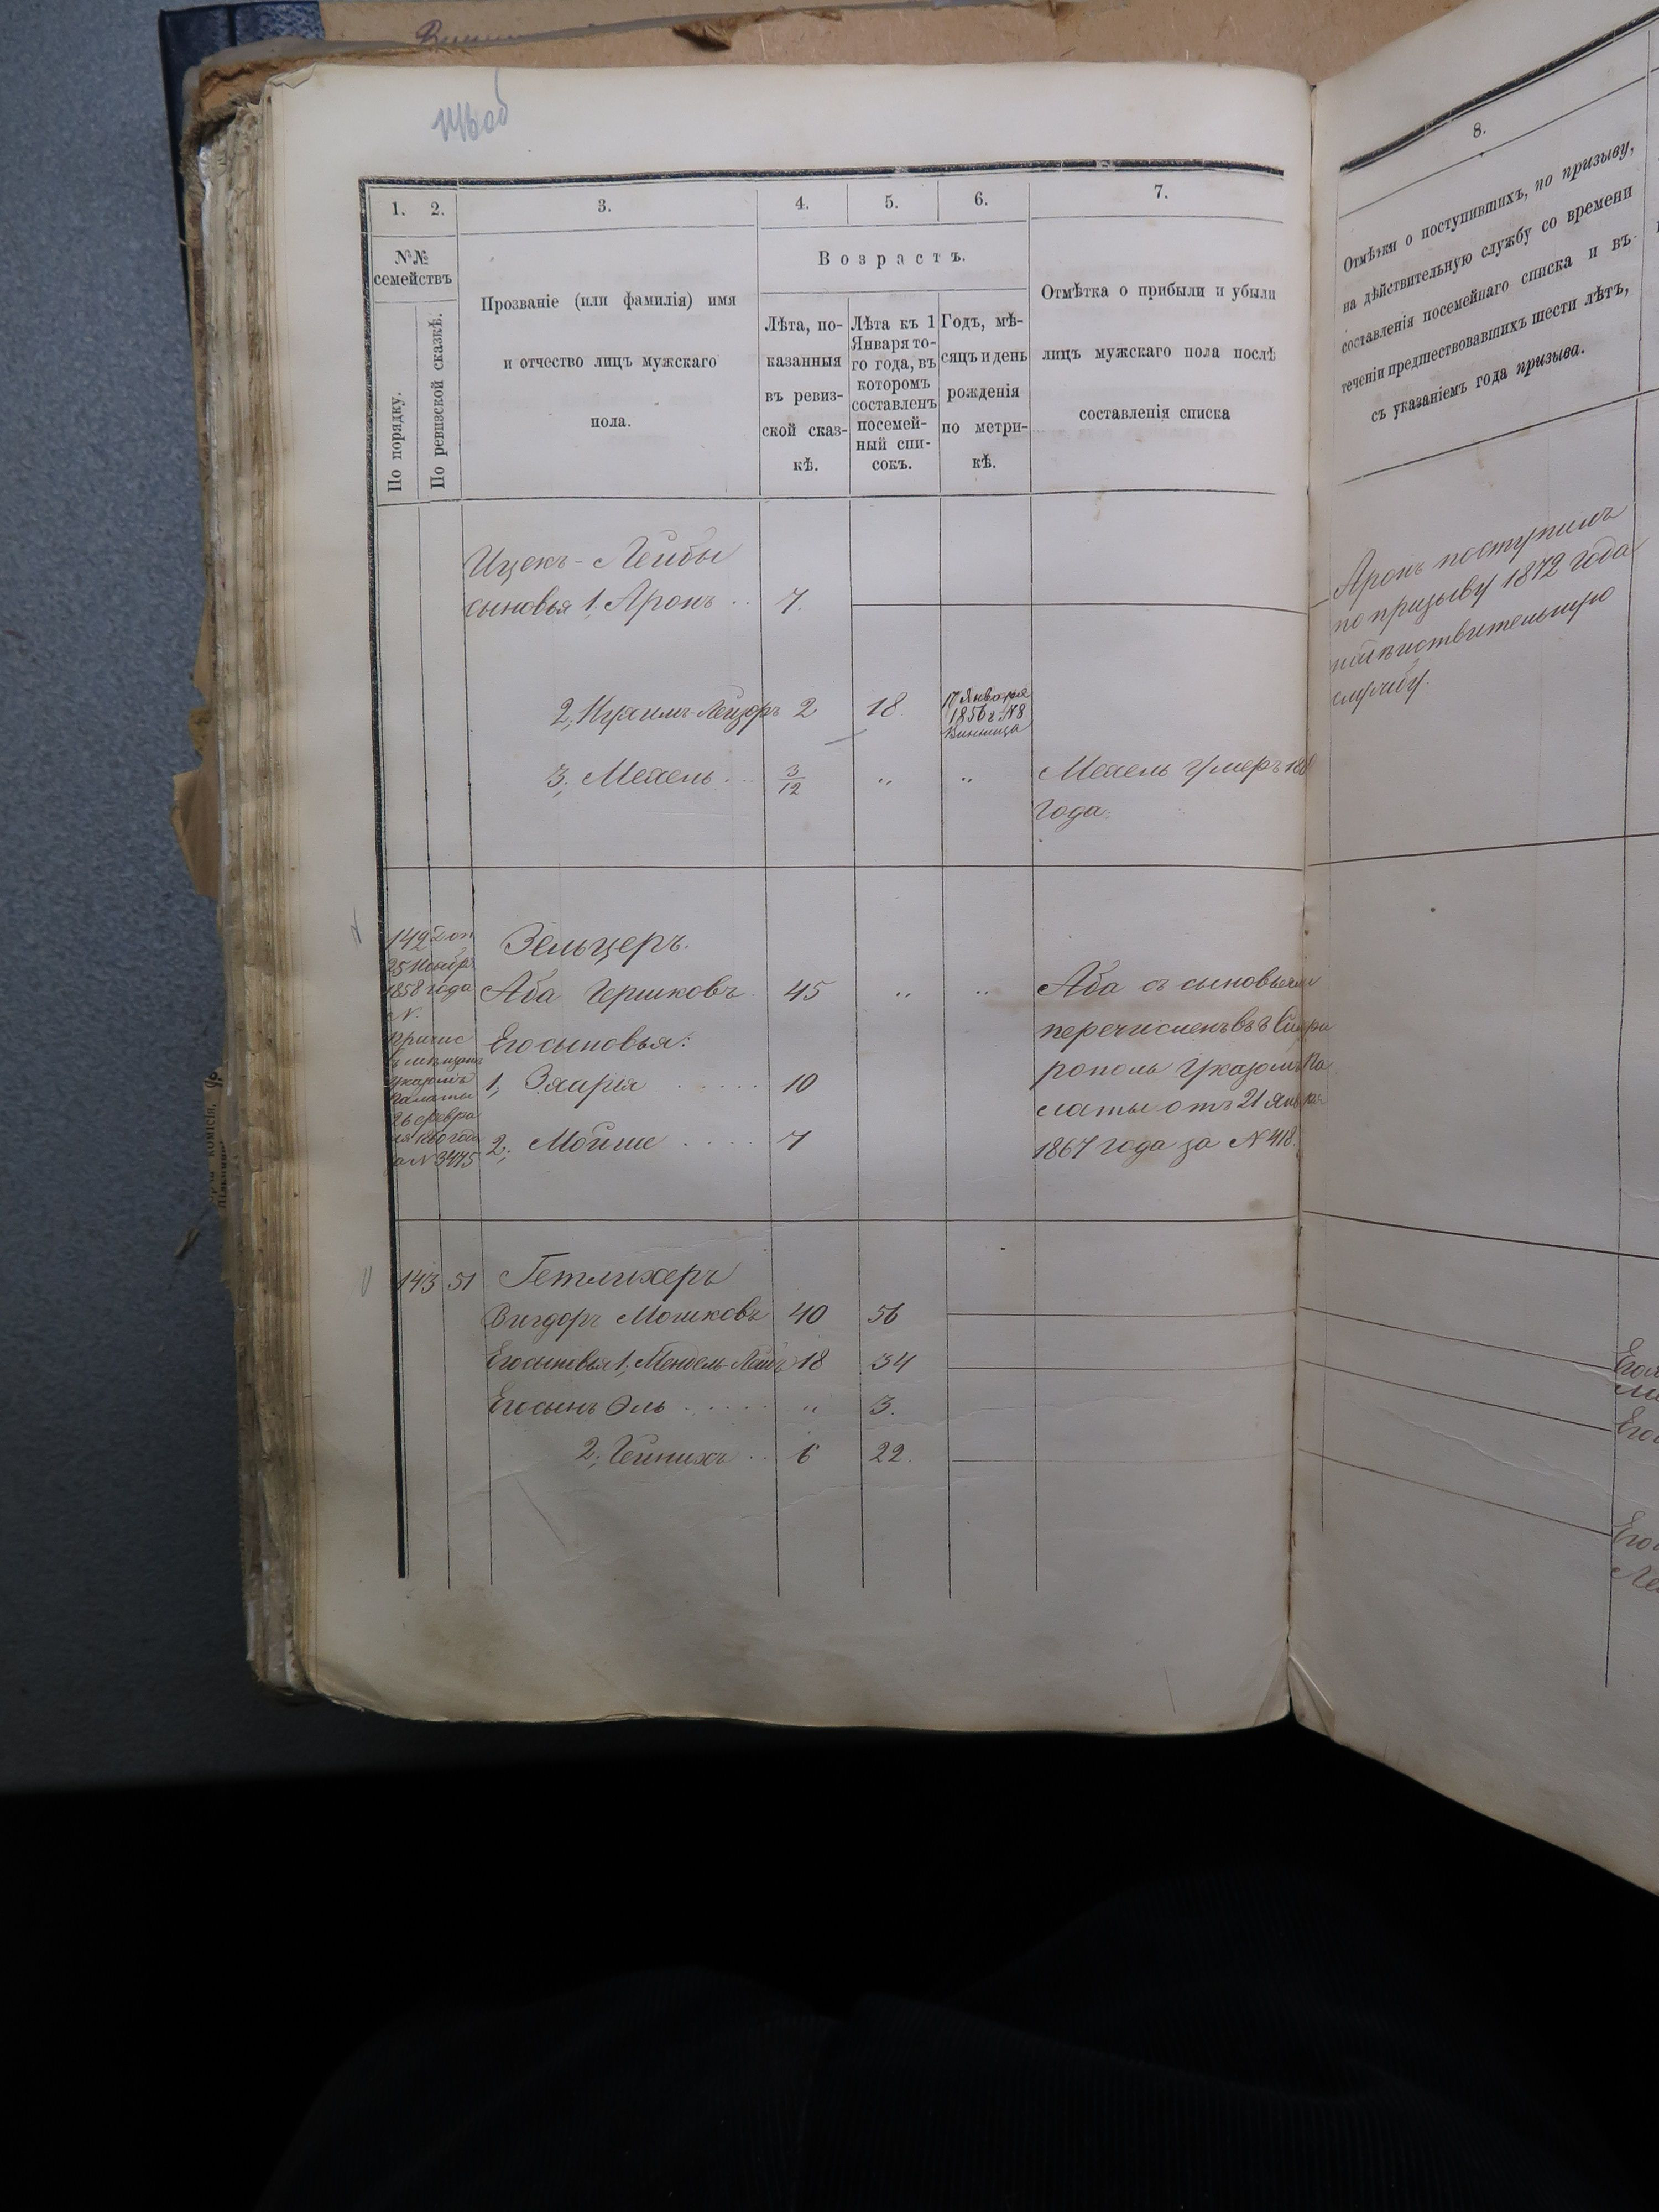 1. 2. 3. 4. 5. 6. 7.
№№ семействъ
По порядку.
По ревизской сказкѣ.
Прозваніе (или фамилія) имя
и отчество лицъ мужскаго
пола.
Возрастъ.
Лѣта, по-
казанныя
въ ревиз-
ской сказ-
кѣ.
Лѣта къ 1
Января то-
го года, въ
которомъ
составленъ
посемей-
ный спи-
сокъ.
Годъ, мѣ-
сяцъ и день
рожденія
по метри-
кѣ.
Отмѣтка о прибыли и убыли
лицъ мужскаго пола послѣ
составленія списка
Ицекъ-Лейбы
сыновья 1, Аронъ .. 7.
2, Нухимъ-Лейзоръ 2 18.
17 Января
1856 г. №8
Винница
3, Мехель ... 3/12 „ „ Мехель умеръ
года.
142 Доп
25 Ноябр
1858 года
№
Зельцеръ.
Аба Гершковъ 45 „ „ Аба съ сыновьями
перечисленъ въ
Его сыновья:
рополь Указомъ Па
1, Зхирія ...... 10
латы отъ 21 Января
2, Мойше .... 7 1867 года за № 418.
26 Февра
№ 3475
143 51 Гетлихеръ
Вигдоръ Мошковъ 40 56
Его сыновья 1, Мендель-Лейб 18 34
Его сынъ Эль ..... „ 3.
2, Гейнихъ .. 6 22.
8.
Отмѣтки о поступившихъ, по призыву,
на дѣйствительную службу со времени
составленія посемейнаго списка и въ
теченіи предшествовавшихъ шести лѣтъ,
съ указаніемъ года призыва.
Аронъ поступилъ
по призыву 1872 года
на дѣйствительную
службу.
Его
Его